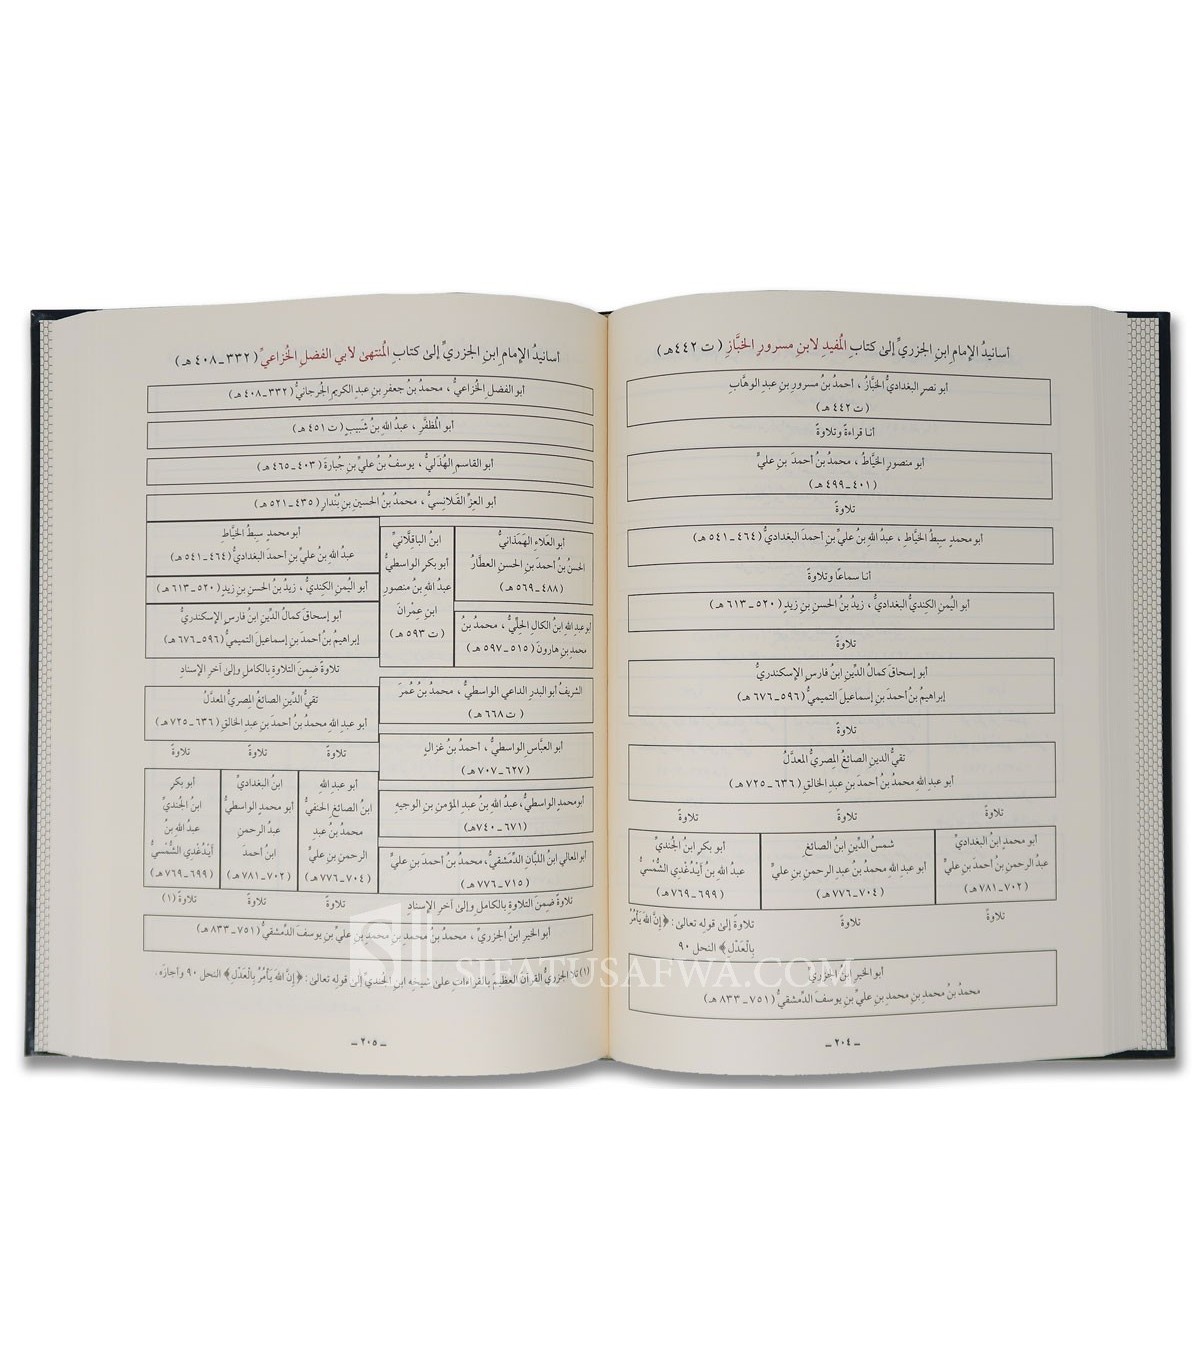 أسانيدُ الإمامِ ابنِ الجزريِّ إلىٰ كتابِ المُفيدِ لابنِ مسرورِ الخبَّازِ ( ت ٤٤٢هـ )
أبو نصرٍ البغداديُّ الخبَّازُ ، أحمدُ بنُ مسرورِ بنِ عبدِ الوهَّابِ
( ت ٤٤٢ هـ )
أنا قراءةً وتلاوةً
أبو منصورٍ الخيَّاطُ ، محمدُ بنُ أحمدَ بنِ عليٍّ
( ٤٠١ــ٤٩٩ هـ )
تلاوةً
أبو محمدٍ سِبطُ الخيَّاطِ ، عبدُ اللهِ بنُ عليِّ بنِ أحمدَ البغداديُّ ( ٤٦٤ــ٥٤١ هـ )
أنا سماعًا وتلاوةً
أبو اليُمنِ الكِنديُّ البغداديُّ ، زيدُ بنُ الحسنِ بنِ زيدٍ ( ٥٢٠ــ٦١٣ هـ )
تلاوةً
أبو إسحاقَ كمالُ الدِّينِ ابنُ فارسٍ الإسكندريُّ
إبراهيمُ بنُ أحمدَ بنِ إسماعيلَ التميميُّ ( ٥٩٦ــ٦٧٦ هـ )
تلاوةً
تقيُّ الدينِ الصائغُ المِصريُّ المعدَّلُ
أبو عبدِ اللهِ محمدُ بنُ أحمدَ بنِ عبدِ الخالقِ ( ٦٣٦ــ٧٢٥ هـ )
تلاوةً تلاوةً تلاوةً
أبو محمدٍ ابنُ البغداديِّ
عبدُ الرحمنِ بنُ أحمدَ بنِ عليٍّ
( ٧٠٢ــ٧٨١ هـ )
شمسُ الدِّينِ ابنُ الصائغِ
أبو عبدِ اللهِ محمدُ بنُ عبدِ الرحمنِ بنِ عليٍّ
( ٧٠٤ــ٧٧٦ هـ )
أبو بكرٍ ابنُ الجُنديِّ
عبدُ اللهِ بنُ أَيْدُغْدِي الشَّمْسيُّ
( ٦٩٩ــ٧٦٩ هـ )
تلاوةً تلاوةً تلاوةً إلىٰ قولِه تعالىٰ: ﴿ إِنَّ اللهَ يَأْمُرُ
بِالْعَدْلِ﴾ النحل ٩٠
أبو الخيرِ ابنُ الجزريِّ
محمدُ بنُ محمدِ بنِ محمدِ بنِ عليِّ بنِ يوسفَ الدِّمشقيُّ ( ٧٥١ــ٨٣٣ هـ )
ــ ٢٠٤ ــ
أسانيدُ الإمامِ ابنِ الجزريِّ إلىٰ كتابِ المُنتهىٰ لأبي الفضلِ الخُزاعيِّ ( ٣٣٢ــ٤٠٨ هـ )
أبو الفضلِ الخُزاعيُّ ، محمدُ بنُ جعفرِ بنِ عبدِ الكريمِ الجُرجانيُّ ( ٣٣٢ــ٤٠٨ هـ )
أبو المُظفَّرِ ، عبدُ اللهِ بنُ شَبيبٍ ( ت ٤٥١ هـ )
أبو القاسمِ الهُذَليُّ ، يوسفُ بنُ عليِّ بنِ جُبارةَ ( ٤٠٣ــ٤٦٥ هـ )
أبو العِزِّ القَلانِسيُّ ، محمدُ بنُ الحسينِ بنِ بُندارٍ ( ٤٣٥ــ٥٢١ هـ )
أبو العَلاءِ الهَمَذانيُّ
الحسنُ بنُ أحمدَ بنِ الحسنِ العطَّارُ
( ٤٨٨ــ٥٦٩ هـ )
أبو عبدِ اللهِ ابنُ الكالِ الحِلِّيُّ ، محمدُ بنُ
محمدِ بنِ هارونَ ( ٥١٥ــ٥٩٧ هـ )
ابنُ الباقِلَّانيِّ
أبو بكرٍ الواسطيُّ
عبدُ اللهِ بنُ منصورِ
ابنِ عِمْرانَ
( ت ٥٩٣ هـ )
الشريفُ أبو البدرِ الداعي الواسطيُّ ، محمدُ بنُ عُمرَ
( ت ٦٦٨ هـ )
أبو العبَّاسِ الواسطيُّ ، أحمدُ بنُ غزالٍ
( ٦٢٧ــ٧٠٧ هـ )
أبو محمدٍ الواسطيُّ، عبدُ اللهِ بنُ عبدِ المؤمنِ بنِ الوجيهِ
( ٦٧١ــ٧٤٠هـ )
أبو المعالي ابنُ اللَّبَّانِ الدِّمشقيُّ، محمدُ بنُ أحمدَ بنِ عليٍّ
( ٧١٥ــ٧٧٦ هـ )
تلاوةً ضِمنَ التلاوةِ بالكاملِ وإلىٰ آخرِ الإسنادِ
أبو محمدٍ سِبطُ الخيَّاطِ
عبدُ اللهِ بنُ عليِّ بنِ أحمدَ البغداديُّ ( ٤٦٤ــ٥٤١ هـ )
أبو اليُمنِ الكِنديُّ ، زيدُ بنُ الحسنِ بنِ زيدٍ ( ٥٢٠ــ٦١٣ هـ )
أبو إسحاقَ كمالُ الدِّينِ ابنُ فارسٍ الإسكندريُّ
إبراهيمُ بنُ أحمدَ بنِ إسماعيلَ التميميُّ ( ٥٩٦ــ٦٧٦ هـ )
تلاوةً ضِمنَ التلاوةِ بالكاملِ وإلىٰ آخرِ الإسنادِ
تقيُّ الدِّينِ الصائغُ المِصريُّ المعدَّلُ
أبو عبدِ اللهِ محمدُ بنُ أحمدَ بنِ عبدِ الخالقِ ( ٦٣٦ــ٧٢٥ هـ )
تلاوةً تلاوةً تلاوةً
أبو عبدِ اللهِ
ابنُ الصائغِ الحنفيُّ
محمدُ بنُ عبدِ
الرحمنِ بنِ عليٍّ
( ٧٠٤ــ٧٧٦ هـ )
ابنُ البغداديِّ
أبو محمدٍ الواسطيُّ
عبدُ الرحمنِ
ابنُ أحمدَ
( ٧٠٢ــ٧٨١ هـ )
أبو بكرٍ
ابنُ الجُنديِّ
عبدُ اللهِ بنُ
أَيْدُغْدِي الشَّمْسيُّ
( ٦٩٩ــ٧٦٩ هـ )
تلاوةً تلاوةً تلاوةً (١)
أبو الخيرِ ابنُ الجزريِّ ، محمدُ بنُ محمدِ بنِ محمدِ بنِ عليِّ بنِ يوسفَ الدِّمشقيُّ ( ٧٥١ــ٨٣٣ هـ )
(١) تلا الجزريُّ القرآنَ العظيمَ بالقراءاتِ علىٰ شيخِه ابنِ الجُنديِّ إلىٰ قولِه تعالىٰ: ﴿إِنَّ اللهَ يَأْمُرُ بِالْعَدْلِ﴾ النحل ٩٠ وأجازَه .
ــ ٢٠٥ ــ
SIFATUSAFWA.COM